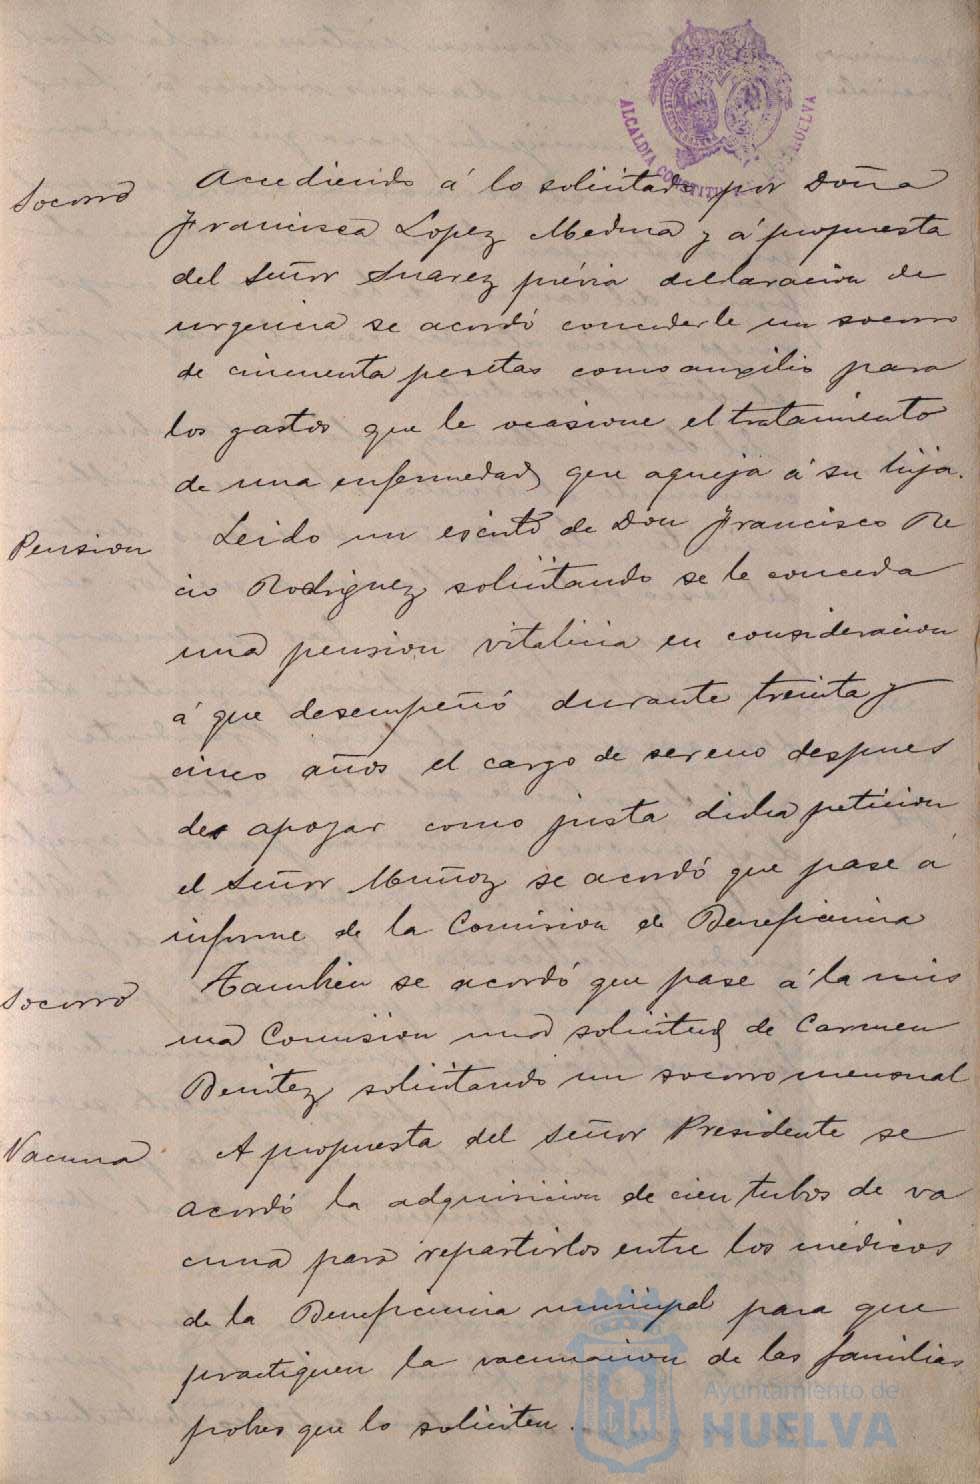 ALCALDIA CONSTITU HUELVA
Socorro
Accediendo á lo solicitado por Doña
Francisca Lopez Medina y á propuesta
del Señor Suarez prévia declaracion de
urgencia se acordó concederle un socorro
de cincuenta pesetas como auxilio para
los gastos que le ocasione el tratamiento
de una enfermedad que aqueja á su hija.
Pension
Leido un escrito de Don Francisco Re
cio Rodriguez solicitando se le conceda
una pension vitalicia en consideracion
á que desempeñó durante treinta y
cinco años el cargo de sereno despues
de apoyar como justa dicha peticion
el Señor Muñoz se acordó que pase á
informe de la Comision de Beneficencia
Socorro
Tambien se acordó que pase á la mis
ma Comision una solicitud de Carmen
Benitez solicitando un socorro mensual
Vacuna
A propuesta del Señor Presidente se
acordó la adquisicion de cien tubos de va
cuna para repartirlos entre los médicos
de la Beneficencia municipal para que
practiquen la vacunacion de las familias
pobres que lo soliciten.
Ayuntamiento de
HUELVA